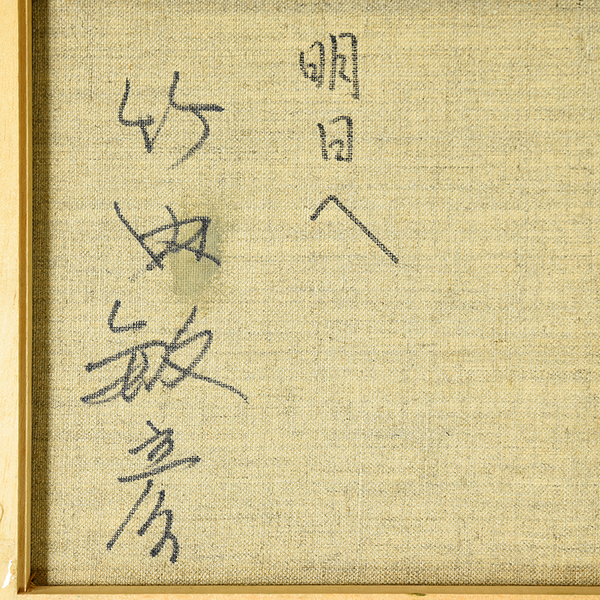 明日へ
竹内敏彦